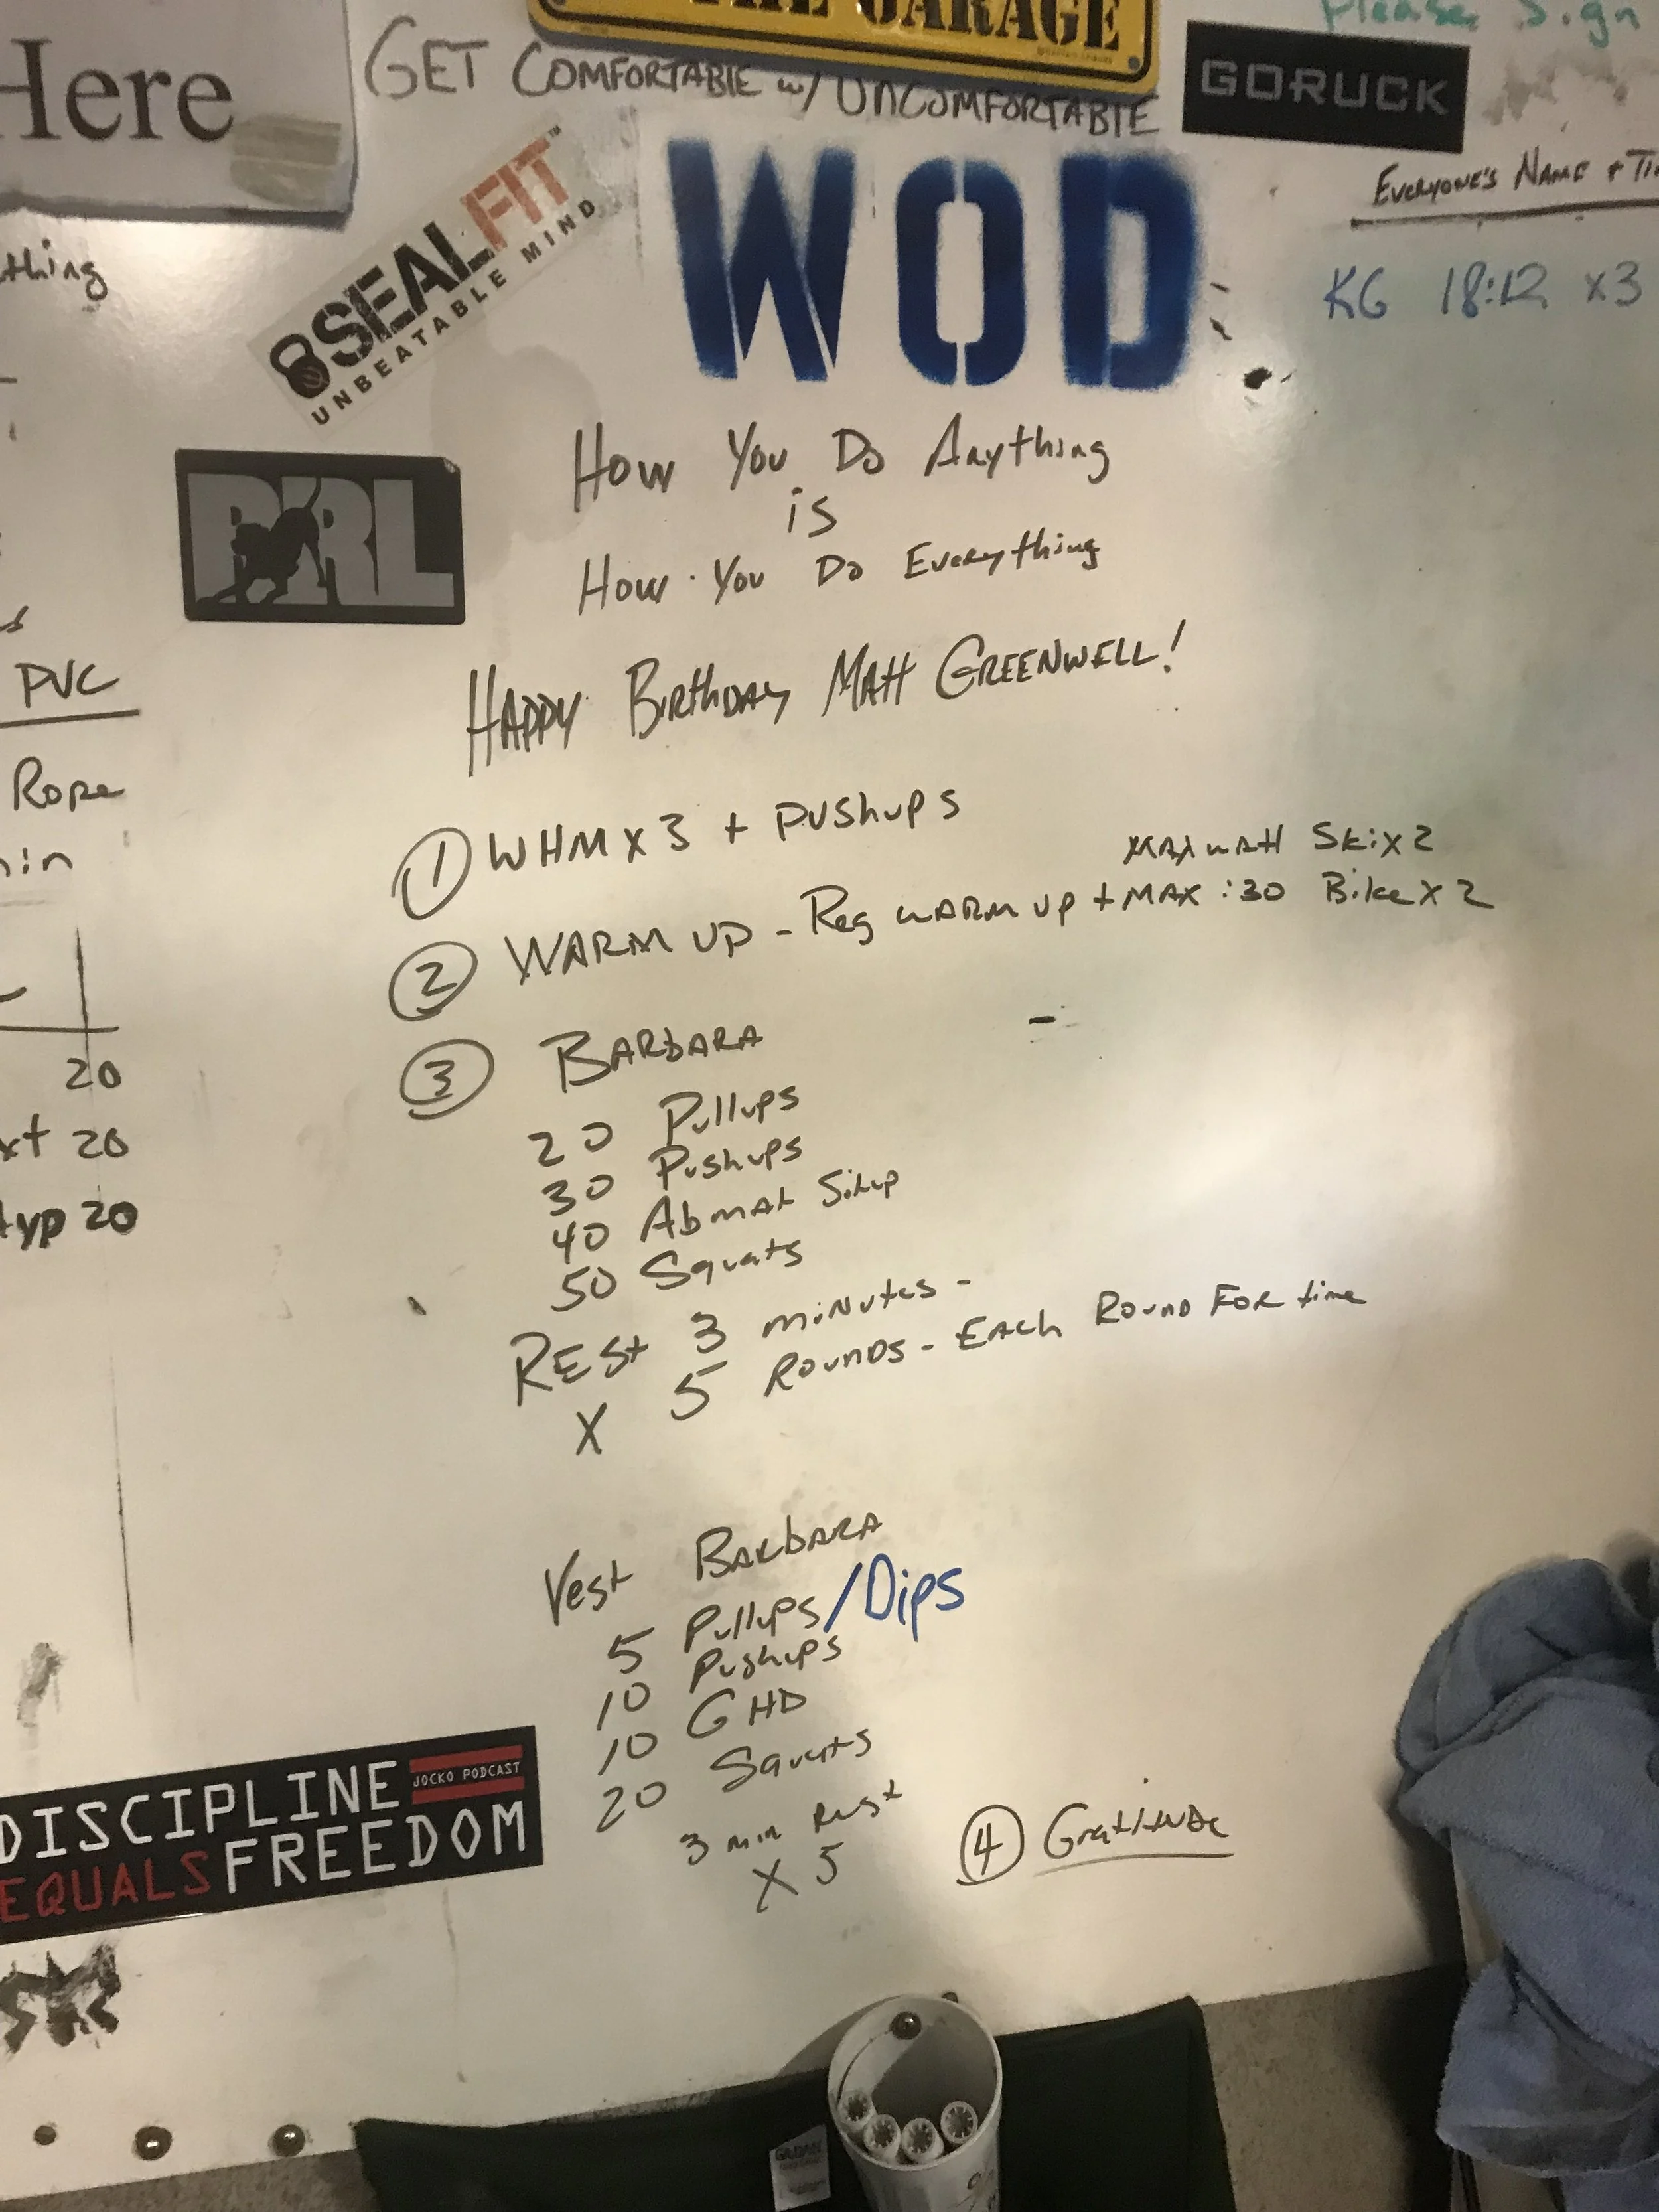 THE GARAGE
Please Sign
Here
GET COMFORTABLE w/ UNCOMFORTABLE
GORUCK
EVERYONE'S NAME +
SEALFIT™
UNBEATABLE MIND
WOD
KG 18:12 x3
PRL
How You Do Anything
is
How You Do Everything
HAPPY BIRTHDAY MATT GREENWELL!
PVC
Rope
① WHM x 3 + PUSHUPS
MAX WATT Ski x 2
② WARM UP - Reg WARM UP + MAX :30 Bike x 2
③ BARBARA
20
20 Pullups
20
30 Pushups
20
40 Abmat Situp
50 Squats
REST 3 minutes -
X 5 ROUNDS - EACH ROUND FOR time
Vest BARBARA
5 Pullups/Dips
10 Pushups
10 GHD
20 Squats
3 min Rest
X 5
④ Gratitude
DISCIPLINE JOCKO PODCAST
EQUALS FREEDOM